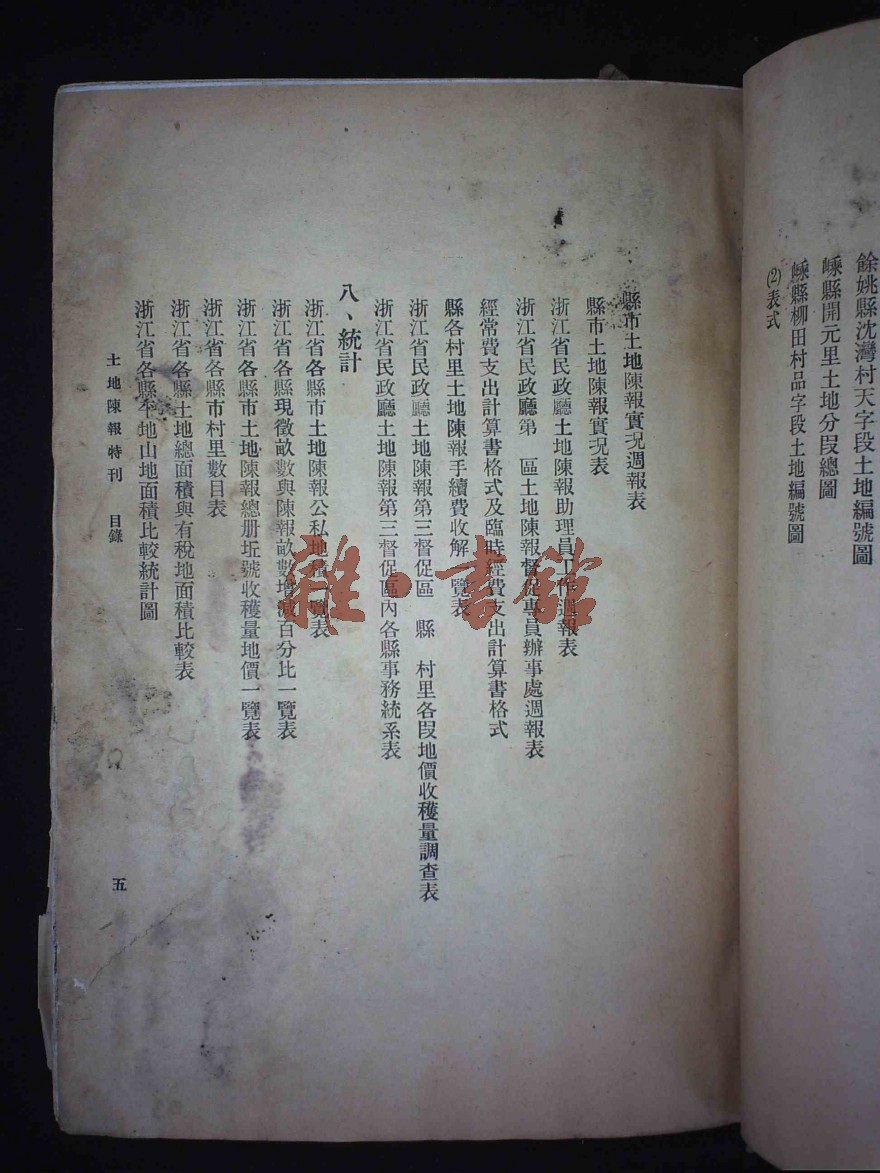 餘姚縣沈灣村天字段土地編號圖
嵊縣開元里土地分段總圖
嵊縣柳田村品字段土地編號圖
(2)表式
縣市土地陳報實況週報表
縣市土地陳報實況表
浙江省民政廳土地陳報助理員工作週報表
浙江省民政廳第　區土地陳報督促專員辦事處週報表
經常費支出計算書格式及臨時經費支出計算書格式
縣各村里土地陳報手續費收解一覽表
浙江省民政廳土地陳報第三督促區　縣　村里各段地價收穫量調查表
浙江省民政廳土地陳報第三督促區內各縣事務統系表
八、統計
浙江省各縣市土地陳報公私地積一覽表
浙江省各縣現徵畝數與陳報畝數增減百分比一覽表
浙江省各縣市土地陳報總册坵號收穫量地價一覽表
浙江省各縣市村里數目表
浙江省各縣土地總面積與有稅地面積比較表
浙江省各縣平地山地面積比較統計圖
土地陳報特刊　目錄
五
雜·書館